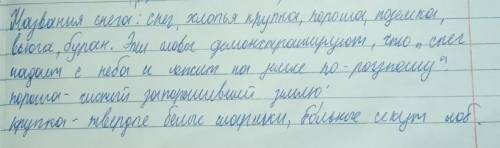 Названия снега: снег, хлопья крупка, пороша, поземка,
вьюга, буран. Эти слова демонстрируют, что „снег
падает с неба и лежит на земле по-разному"
пороша - снегопад запорошивший землю.
крупка - твердые белые шарики, больно секут лоб.